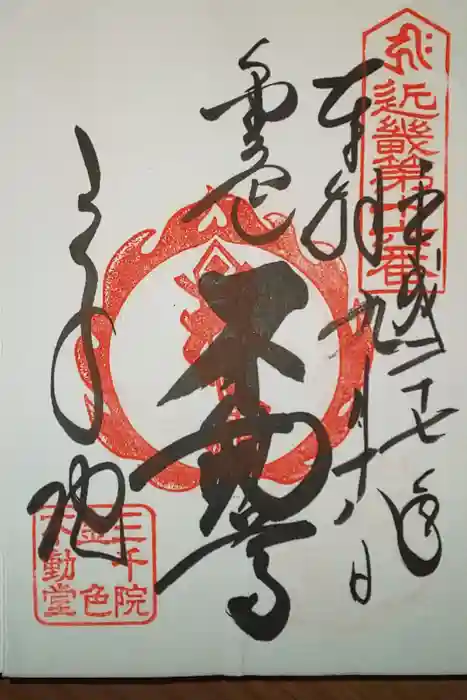 近畿第十六番
奉拝
平成二十七年
九月十八日
不動尊
三千院
三千院
金色
不動堂